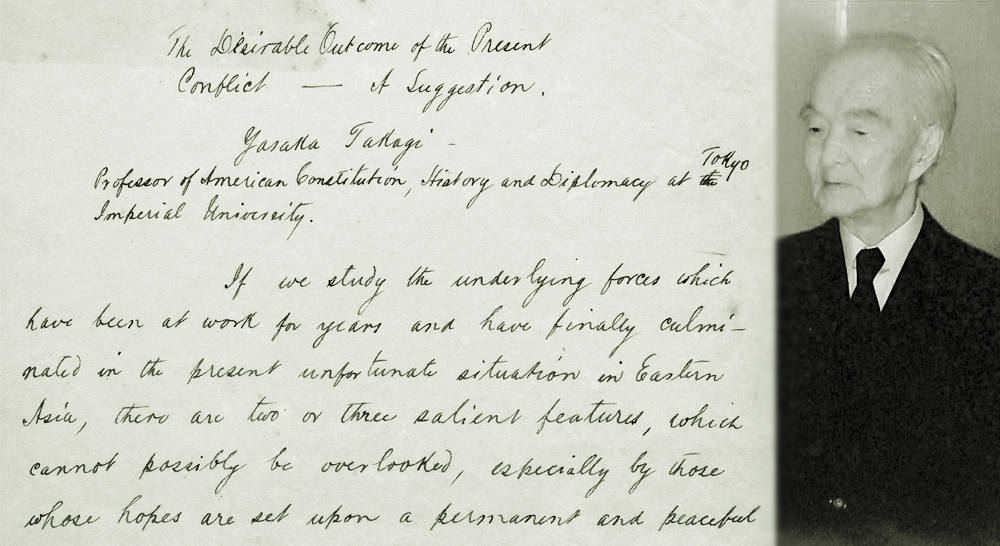 The Desirable Outcome of the Present
Conflict — A Suggestion.
Yasaka Takagi -
Professor of American Constitution, History and Diplomacy at the Tokyo
Imperial University.
If we study the underlying forces which
have been at work for years and have finally culmi-
nated in the present unfortunate situation in Eastern
Asia, there are two or three salient features, which
cannot possibly be overlooked, especially by those
whose hopes are set upon a permanent and peaceful